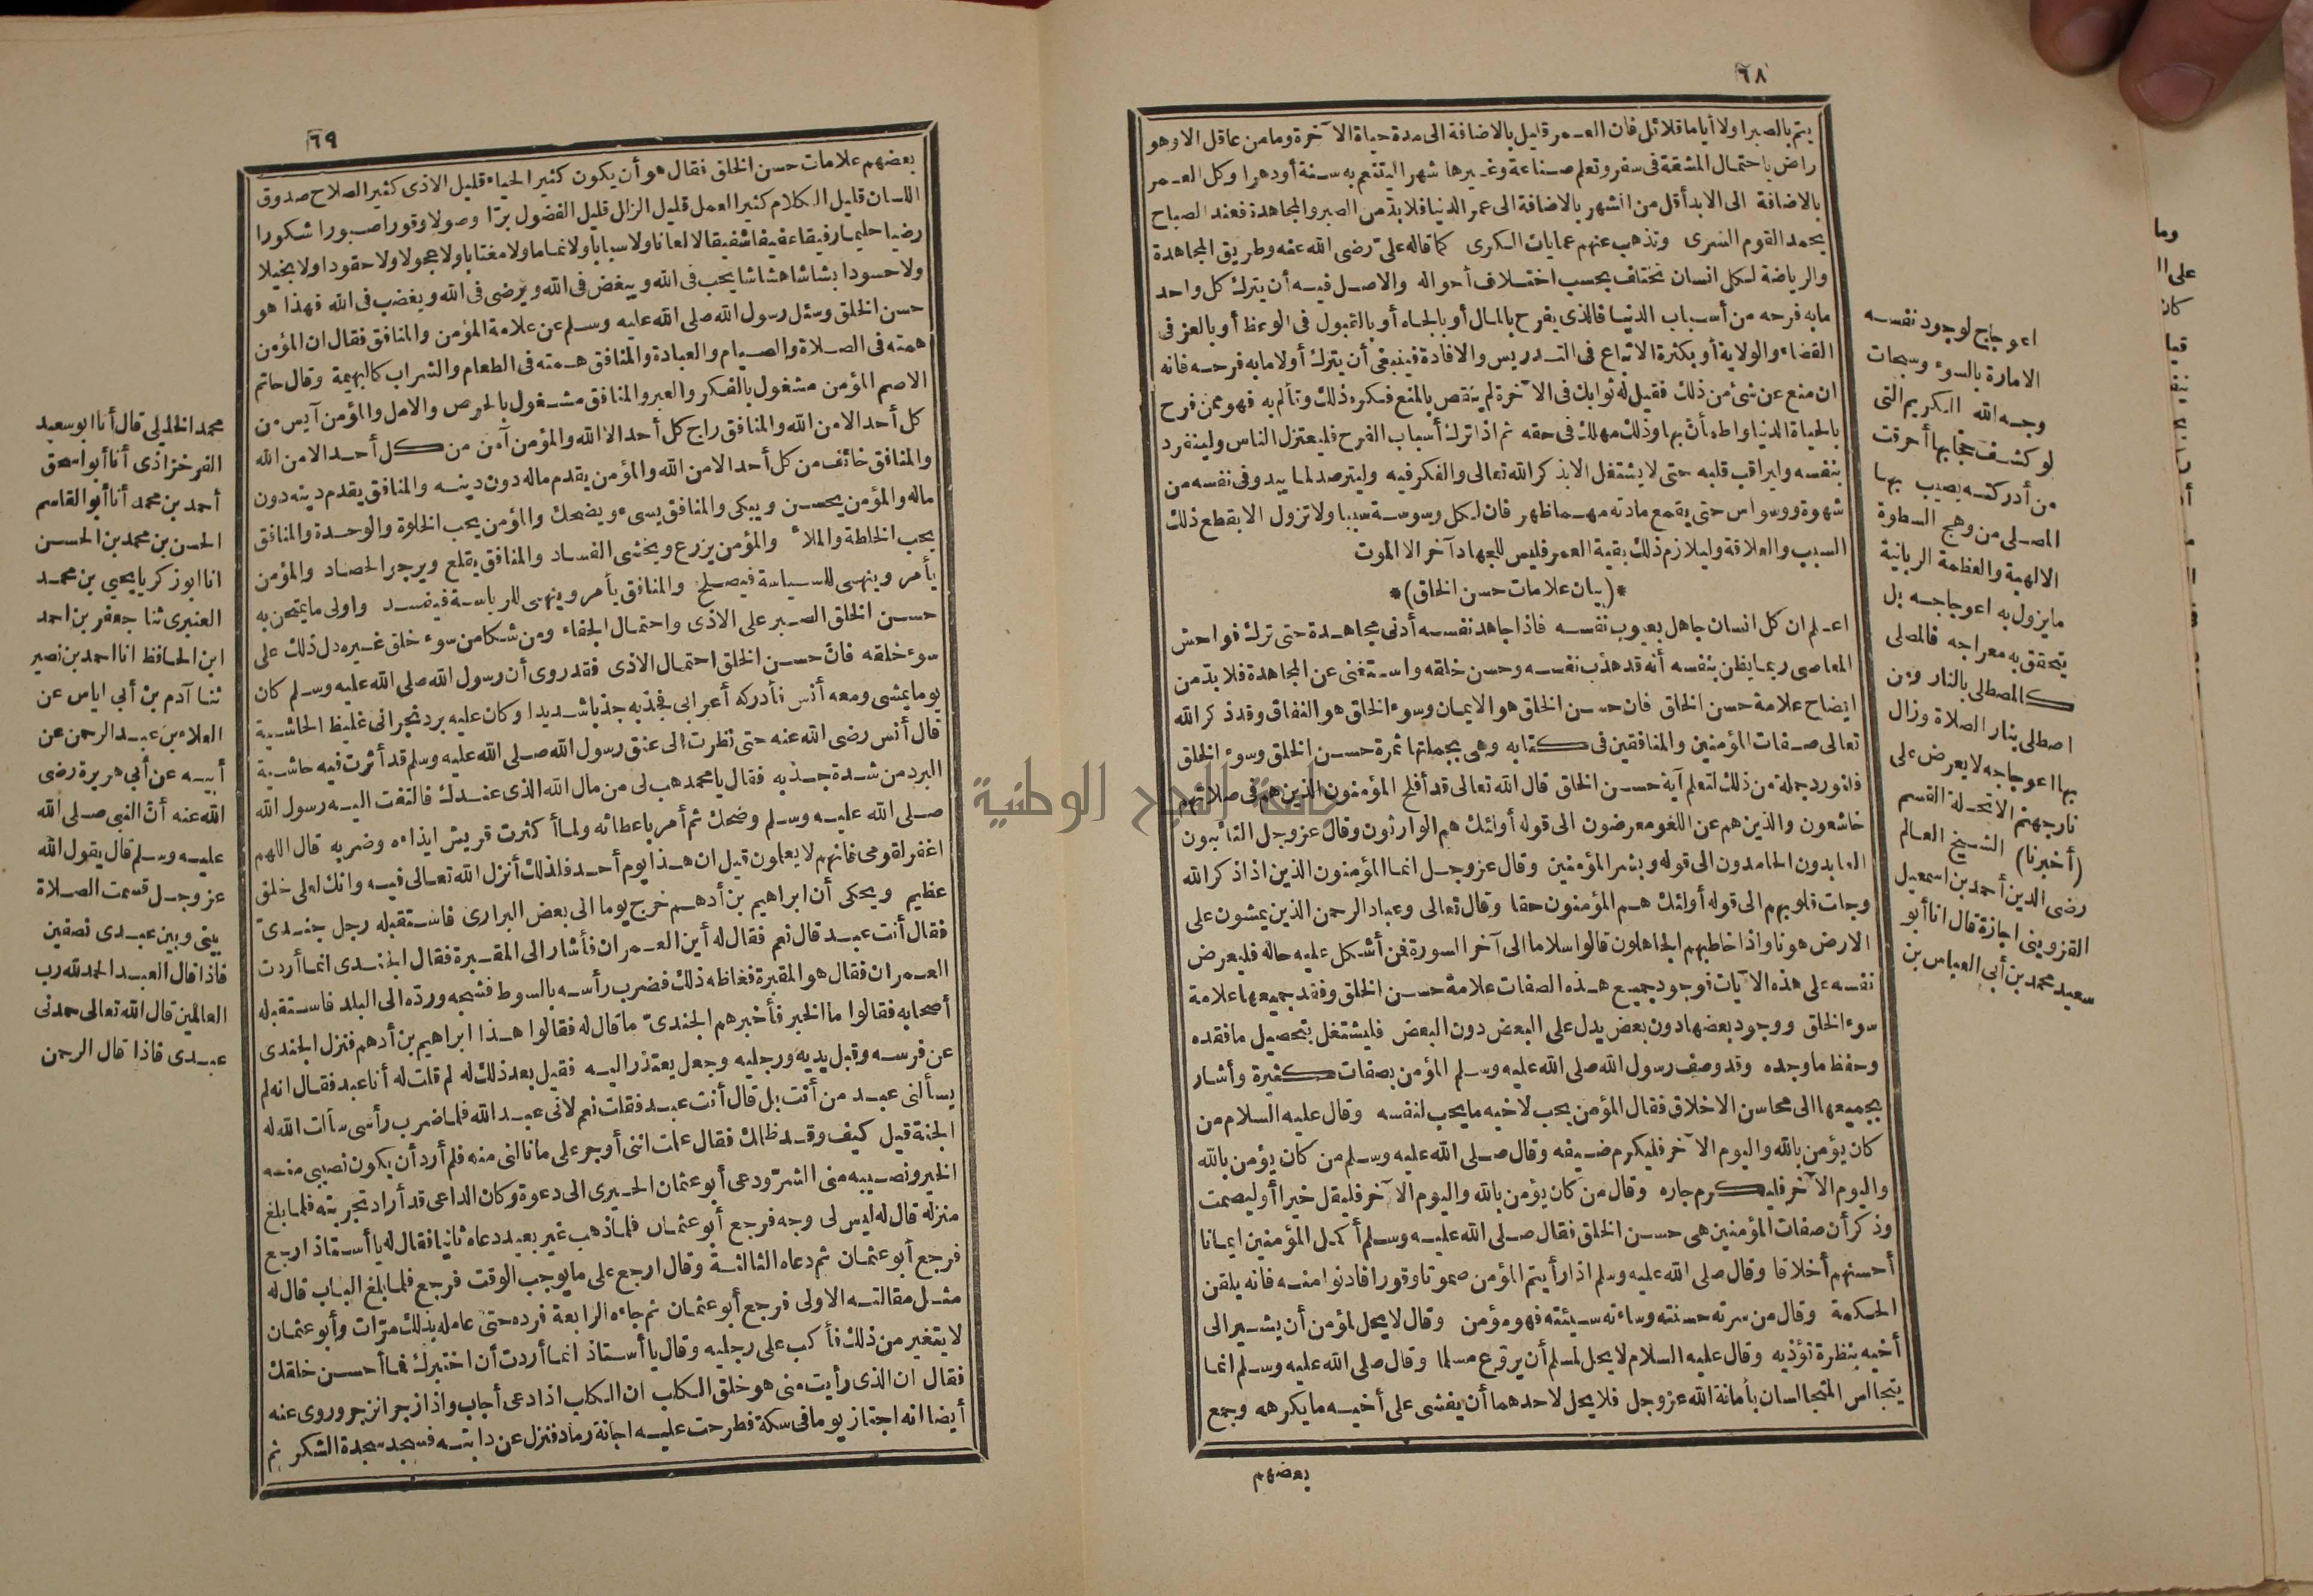 ٦٨
يتم بالصبر اولا أياما قلائل فان العمر قليل بالاضافة الى مدة حياة الآخرة وما من عاقل الا وهو
راض باحتمال المشقة فى سفر وتعلم صناعة وغيرها شهرا ليتنعم به سنة أو دهرا وكل العمر
بالاضافة الى الابد أقل من الشهر بالاضافة الى عمر الدنيا فلا بد من الصبر والمجاهدة فعند الصباح
يحمد القوم السرى وتذهب عنهم عمايات الكرى كما قاله على رضى الله عنه وطريق المجاهدة
والرياضة لكل انسان تختلف بحسب اختلاف أحواله والاصل فيه أن يترك كل واحد
ما به فرحه من أسباب الدنيا فالذى يفرح بالمال أو بالجاه أو بالقبول فى الوعظ أو بالعز فى
القضاء والولاية أو بكثرة الاتباع فى التدريس والافادة فينبغى أن يترك أولا ما به فرحه فانه
ان منع عن شئ من ذلك فقيل له ثوابك فى الآخرة لم ينقص بالمنع فكره ذلك وتألم به فهو ممن فرح
بالحياة الدنيا واطمأن بها وذلك مهلك فى حقه ثم اذا ترك أسباب الفرح فليعتزل الناس ولينفرد
بنفسه وليراقب قلبه حتى لا يشتغل الا بذكر الله تعالى والفكر فيه وليترصد لما يبدو فى نفسه من
شهوة ووسواس حتى يقمع مادته مهما ظهر فان لكل وسوسة سببا ولا تزول الا بقطع ذلك
السبب والعلاقة وليلازم ذلك بقية العمر فليس للجهاد آخر الا الموت
*(بيان علامات حسن الخلق)*
اعلم ان كل انسان جاهل بعيوب نفسه فاذا جاهد نفسه أدنى مجاهدة حتى ترك فواحش
المعاصى ربما يظن بنفسه أنه قد هذب نفسه وحسن خلقه واستغنى عن المجاهدة فلا بد من
ايضاح علامة حسن الخلق فان حسن الخلق هو الايمان وسوء الخلق هو النفاق وقد ذكر الله
تعالى صفات المؤمنين والمنافقين فى كتابه وهى بجملتها ثمرة حسن الخلق وسوء الخلق
فلنورد جملة من ذلك لتعلم آية حسن الخلق قال الله تعالى قد أفلح المؤمنون الذين هم فى صلاتهم
خاشعون والذين هم عن اللغو معرضون الى قوله أولئك هم الوارثون وقال عز وجل التائبون
العابدون الحامدون الى قوله وبشر المؤمنين وقال عز وجل انما المؤمنون الذين اذا ذكر الله
وجلت قلوبهم الى قوله أولئك هم المؤمنون حقا وقال تعالى وعباد الرحمن الذين يمشون على
الارض هونا واذا خاطبهم الجاهلون قالوا سلاما الى آخر السورة فمن أشكل عليه حاله فليعرض
نفسه على هذه الآيات فوجود جميع هذه الصفات علامة حسن الخلق وفقد جميعها علامة
سوء الخلق ووجود بعضها دون بعض يدل على البعض دون البعض فليشتغل بتحصيل ما فقده
وحفظ ما وجده وقد وصف رسول الله صلى الله عليه وسلم المؤمن بصفات كثيرة وأشار
بجميعها الى محاسن الاخلاق فقال المؤمن يحب لاخيه ما يحب لنفسه وقال عليه السلام من
كان يؤمن بالله واليوم الآخر فليكرم ضيفه وقال صلى الله عليه وسلم من كان يؤمن بالله
واليوم الآخر فليكرم جاره وقال من كان يؤمن بالله واليوم الآخر فليقل خيرا أو ليصمت
وذكر أن صفات المؤمنين هى حسن الخلق فقال صلى الله عليه وسلم أكمل المؤمنين ايمانا
أحسنهم أخلاقا وقال صلى الله عليه وسلم اذا رأيتم المؤمن صموتا وقورا فادنوا منه فانه يلقن
الحكمة وقال من سرته حسنته وساءته سيئته فهو مؤمن وقال لا يحل لمؤمن أن يشير الى
أخيه بنظرة تؤذيه وقال عليه السلام لا يحل لمسلم أن يروع مسلما وقال صلى الله عليه وسلم انما
يتجالس المتجالسان بأمانة الله عز وجل فلا يحل لاحدهما أن يفشى على أخيه ما يكرهه وجمع
بعضهم
اعوجاج لوجود نفسه
الامارة بالسوء وسبحات
وجه الله الكريم التى
لو كشف حجابها أحرقت
من أدركته يصيب بها
المصلى من وهج السطوة
الالهية والعظمة الربانية
ما يزول به اعوجاجه بل
يتحقق به معراجه فالمصلى
كالمصطلى بالنار ومن
اصطلى بنار الصلاة وزال
بها اعوجاجه لا يعرض على
نار جهنم الا تحلة القسم
(أخبرنا) الشيخ العالم
رضى الدين أحمد بن اسمعيل
القزوينى اجازة قال انا أبو
سعيد محمد بن أبى العباس بن
وما
على ال
كان
٦٩
بعضهم علامات حسن الخلق فقال هو أن يكون كثير الحياء قليل الاذى كثير الصلاح صدوق
اللسان قليل الكلام كثير العمل قليل الزلل قليل الفضول برّا وصولا وقورا صبورا شكورا
رضيا حليما رفيقا عفيفا شفيقا لا لعانا ولا سبابا ولا نماما ولا مغتابا ولا عجولا ولا حقودا ولا بخيلا
ولا حسودا بشاشا هشاشا يحب فى الله ويبغض فى الله ويرضى فى الله ويغضب فى الله فهذا هو
حسن الخلق وسئل رسول الله صلى الله عليه وسلم عن علامة المؤمن والمنافق فقال ان المؤمن
همته فى الصلاة والصيام والعبادة والمنافق همته فى الطعام والشراب كالبهيمة وقال حاتم
الاصم المؤمن مشغول بالفكر والعبر والمنافق مشغول بالحرص والامل والمؤمن آيس من
كل أحد الا من الله والمنافق راج كل أحد الا الله والمؤمن آمن من كل أحد الا من الله
والمنافق خائف من كل أحد الا من الله والمؤمن يقدم ماله دون دينه والمنافق يقدم دينه دون
ماله والمؤمن يحسن ويبكى والمنافق يسىء ويضحك والمؤمن يحب الخلوة والوحدة والمنافق
يحب الخلطة والملأ والمؤمن يزرع ويخشى الفساد والمنافق يقلع ويرجو الحصاد والمؤمن
يأمر وينهى للسياسة فيصلح والمنافق يأمر وينهى للرياسة فيفسد واولى ما يمتحن به
حسن الخلق الصبر على الاذى واحتمال الجفاء ومن شكا من سوء خلق غيره دل ذلك على
سوء خلقه فان حسن الخلق احتمال الاذى فقد روى أن رسول الله صلى الله عليه وسلم كان
يوما يمشى ومعه أنس فأدركه أعرابى فجذبه جذبا شديدا وكان عليه برد نجرانى غليظ الحاشية
قال أنس رضى الله عنه حتى نظرت الى عنق رسول الله صلى الله عليه وسلم قد أثرت فيه حاشية
البرد من شدة جذبه فقال يا محمد هب لى من مال الله الذى عندك فالتفت اليه رسول الله
صلى الله عليه وسلم وضحك ثم أمر باعطائه ولما أكثرت قريش ايذاءه وضربه قال اللهم
اغفر لقومى فانهم لا يعلمون قيل ان هذا يوم أحد فلذلك أنزل الله تعالى فيه وانك لعلى خلق
عظيم ويحكى أن ابراهيم بن أدهم خرج يوما الى بعض البرارى فاستقبله رجل جندىّ
فقال أنت عبد قال نعم فقال له أين العمران فأشار الى المقبرة فقال الجندى انما أردت
العمران فقال هو المقبرة فغاظه ذلك فضرب رأسه بالسوط فشجه ورده الى البلد فاستقبله
أصحابه فقالوا ما الخبر فأخبرهم الجندىّ ما قال له فقالوا هذا ابراهيم بن أدهم فنزل الجندى
عن فرسه وقبل يديه ورجليه وجعل يعتذر اليه فقيل بعد ذلك له لم قلت له أنا عبد فقال انه لم
يسألنى عبد من أنت بل قال أنت عبد فقلت نعم لانى عبد الله فلما ضرب رأسى سألت الله له
الجنة قيل كيف وقد ظلمك فقال علمت اننى أوجر على ما نالنى منه فلم أرد أن يكون نصيبى منه
الخير ونصيبه منى الشرّ ودعى أبو عثمان الحيرى الى دعوة وكان الداعى قد أراد تجربته فلما بلغ
منزله قال له ليس لى وجه فرجع أبو عثمان فلما ذهب غير بعيد دعاه ثانيا فقال له يا أستاذ ارجع
فرجع أبو عثمان ثم دعاه الثالثة وقال ارجع على ما يوجب الوقت فرجع فلما بلغ الباب قال له
مثل مقالته الاولى فرجع أبو عثمان ثم جاءه الرابعة فرده حتى عامله بذلك مرّات وأبو عثمان
لا يتغير من ذلك فأكب على رجليه وقال يا أستاذ انما أردت أن اختبرك فما أحسن خلقك
فقال ان الذى رأيت منى هو خلق الكلب ان الكلب اذا دعى أجاب واذا زجر انزجر وروى عنه
أيضا انه اجتاز يوما فى سكة فطرحت عليه اجانة رماد فنزل عن دابته فسجد سجدة الشكر ثم
محمد الخليلى قال أنا ابو سعيد
الفرخزاذى أنا أبو اسحق
أحمد بن محمد أنا أبو القاسم
الحسن بن محمد بن الحسن
انا ابو زكريا يحيى بن محمد
العنبرى ثنا جعفر بن احمد
ابن الحافظ انا احمد بن نصير
ثنا آدم بن أبى اياس عن
العلاء بن عبد الرحمن عن
أبيه عن أبى هريرة رضى
الله عنه أن النبى صلى الله
عليه وسلم قال يقول الله
عز وجل قسمت الصلاة
بينى وبين عبدى نصفين
فاذا قال العبد الحمد لله رب
العالمين قال الله تعالى حمدنى
عبدى فاذا قال الرحمن
جامعة النجاح الوطنية